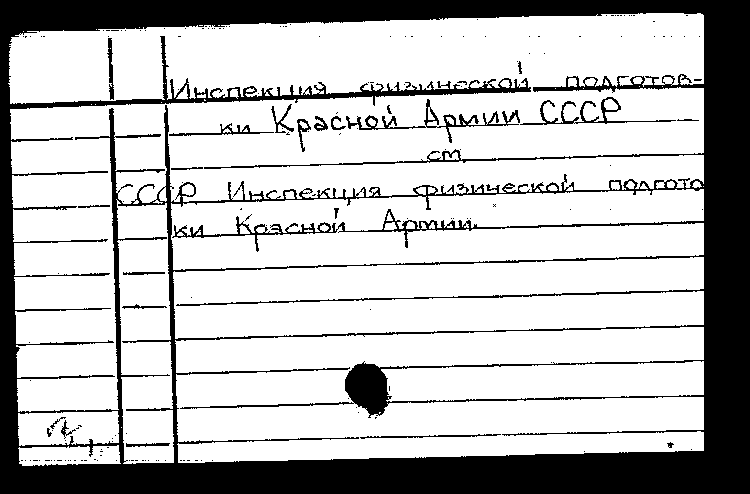 Инспекция физической подготов-
ки Красной Армии СССР
см
СССР Инспекция физической подгото
ки Красной Армии.